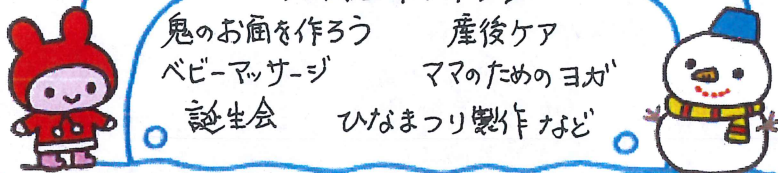 鬼のお面を作ろう　産後ケア
ベビーマッサージ　ママのためのヨガ
誕生会　ひなまつり製作 など